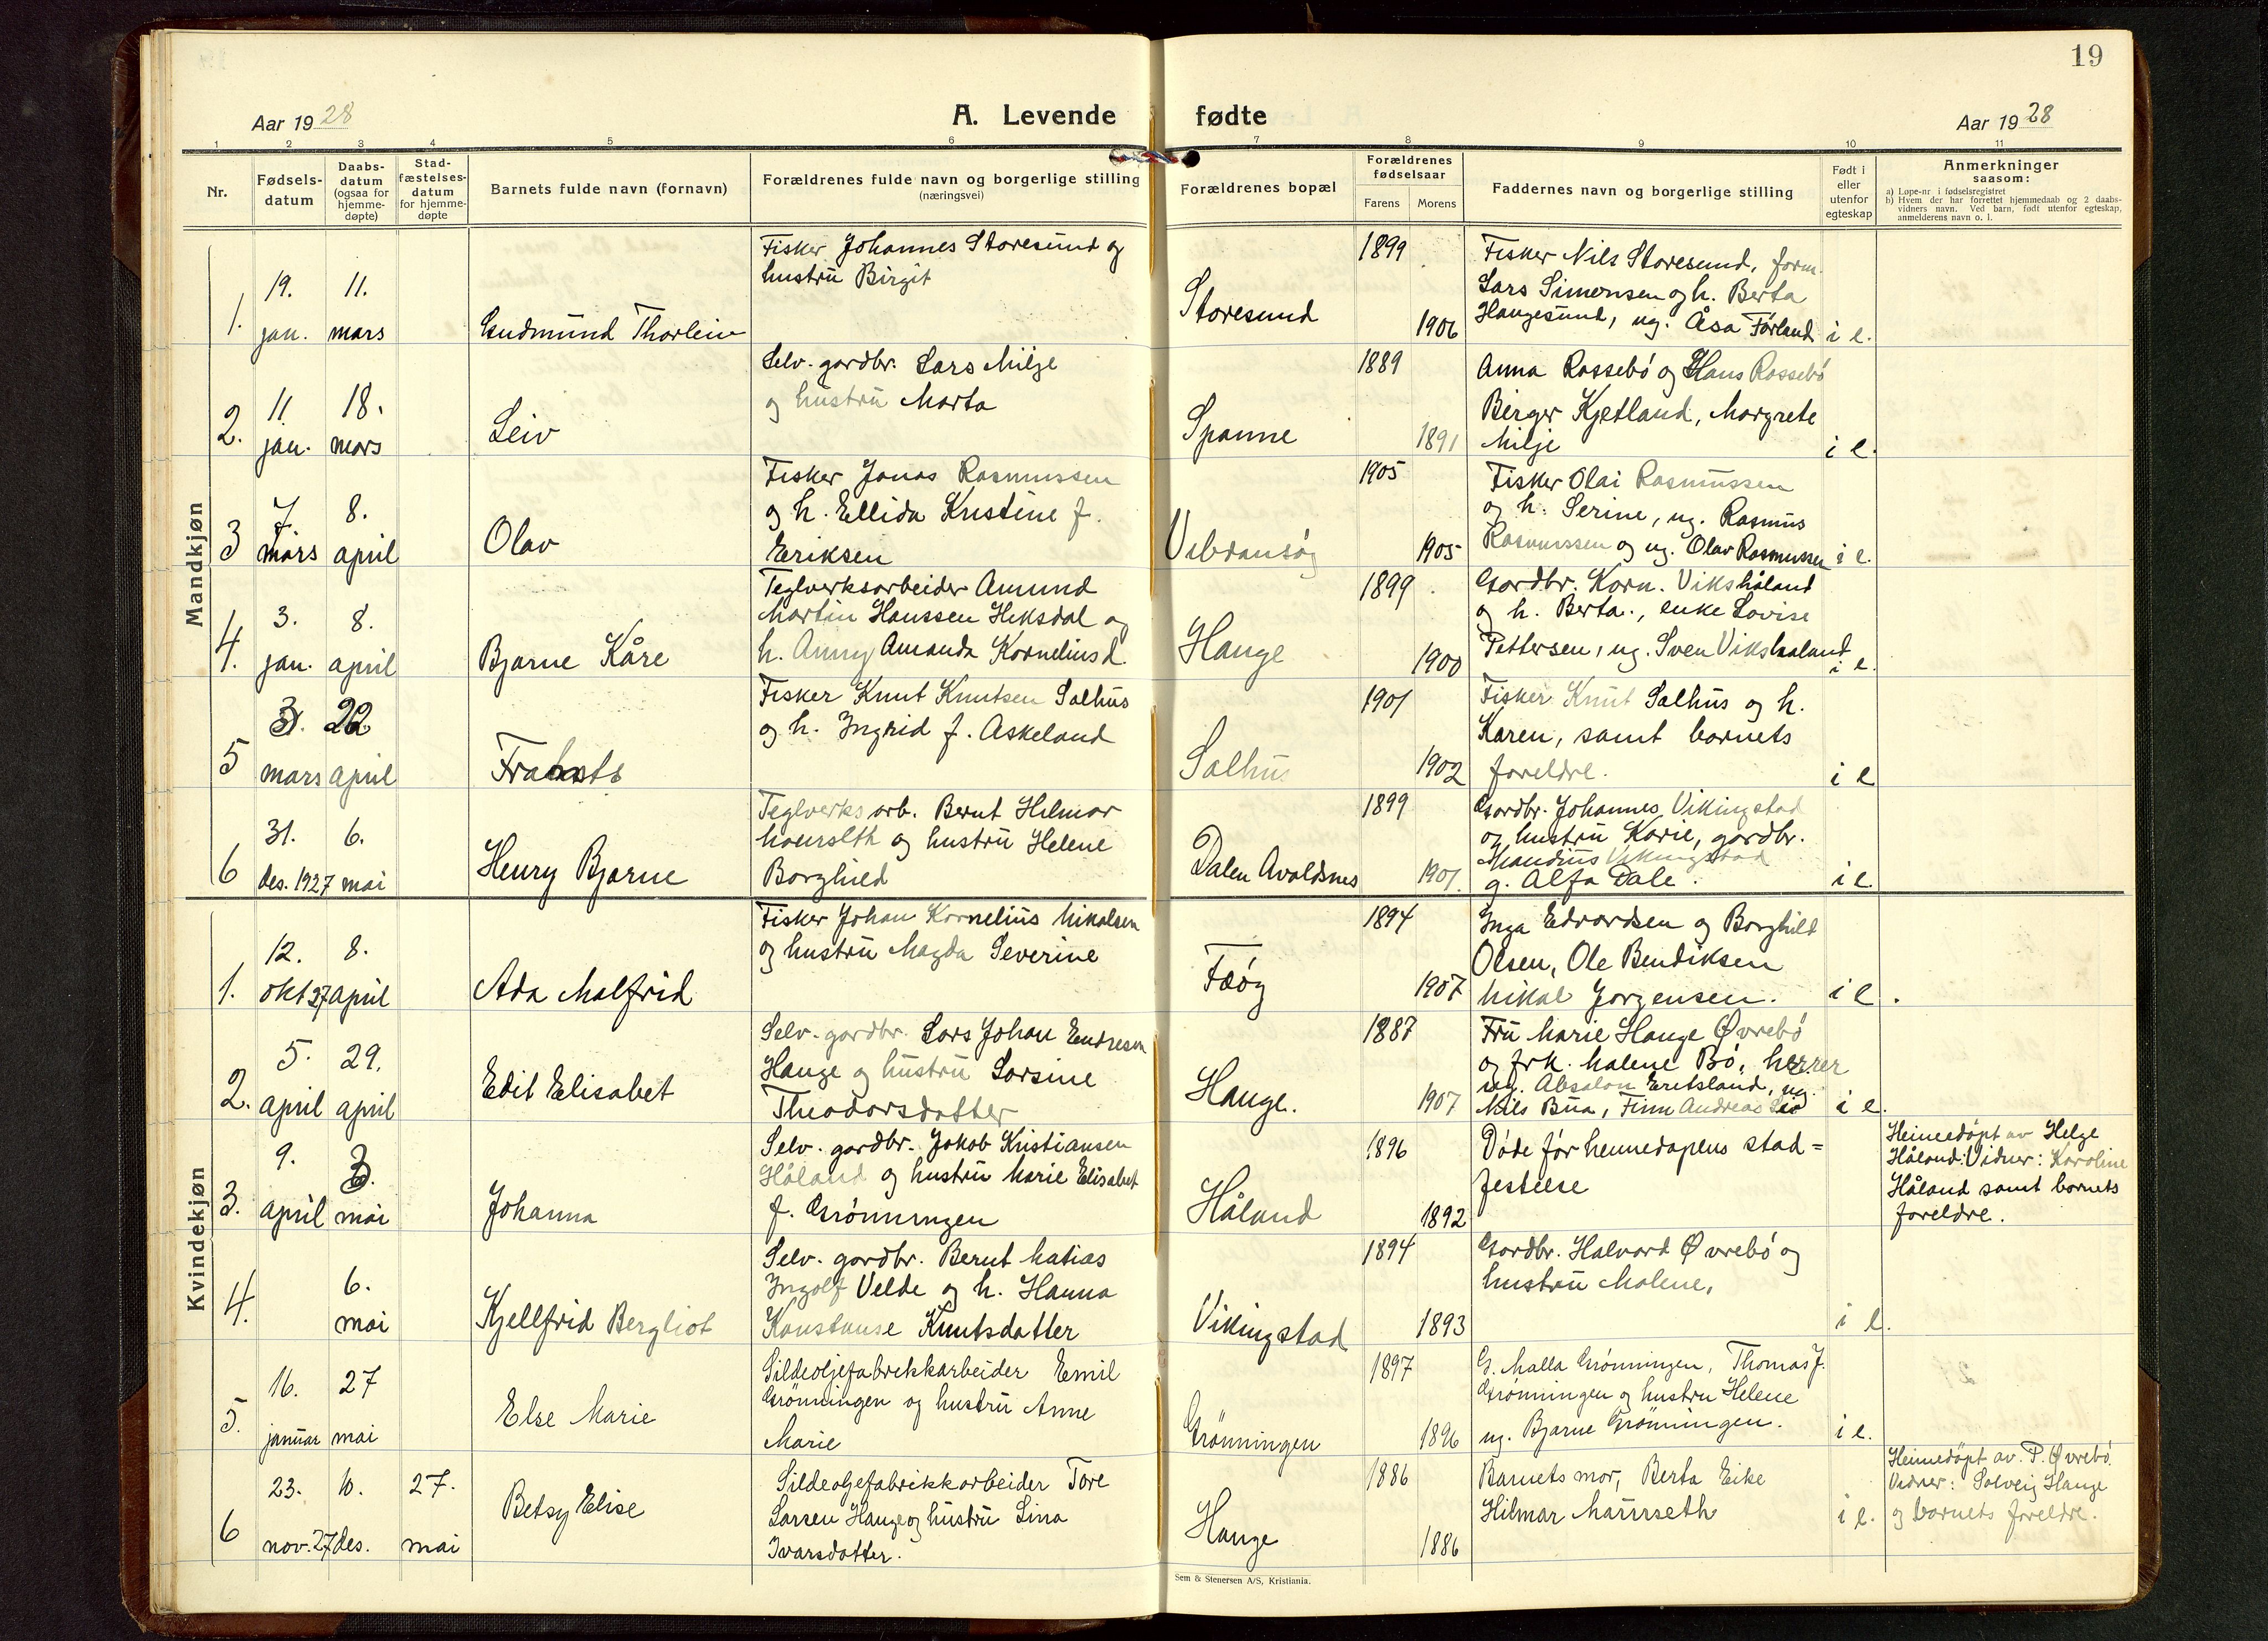 19
Aar 1928
A. Levende fødte
Aar 1928
1 2 3 4 5 6 7 8 9 10 11
Nr.
Fødsels-
datum
Daabs-
datum
(ogsaa for
hjemme-
døpte)
Stad-
fæstelses-
datum
for hjemme-
døpte
Barnets fulde navn (fornavn)
Forældrenes fulde navn og borgerlige stilling
(næringsvei)
Forældrenes bopæl
Forældrenes
fødselsaar
Farens
Morens
Faddernes navn og borgerlige stilling
Født i
eller
utenfor
egteskap
Anmerkninger
saasom:
a) Løpe-nr i fødselsregistret
b) Hvem der har forrettet hjemmedaab og 2 daabs-
vidners navn. Ved barn, født utenfor egteskap,
anmelderens navn o. l.
Mandkjøn
1.
19.
jan.
11.
mars
Gudmund Thorleiv
Fisker Johannes Storesund og
hustru Birgit
Storesund
1899
1906
Fisker Nils Storesund, form.
Lars Simonsen og h. Berta
Haugesund, ug. Åsa Førland
i e.
2.
11.
jan.
18.
mars
Leiv
Selv. gardbr. Lars Milje
og hustru Marta
Spanne
1889
1891
Anna Rossebø og Hans Rossebø
Birger Kjetland, Margrete
Milje
i e.
3
7.
mars
8.
april
Olav
Fisker Jonas Rasmussen
og h. Ellida Kristine f.
Eriksen
1905
1905
Fisker Olai Rasmussen
og h. Serine, ug. Rasmus
Rasmussen og ug. Olav Rasmussen
i e.
4.
3.
jan.
8.
april
Bjarne Kåre
Teglverksarbeider Amund
Martin Hanssen Heksdal og
h. Anny Amanda Korneliusd.
Hauge
1899
1900
Gardbr. Korn. Vikshåland
og h. Berta., enke Lovise
Pettersen, ug. Sven Vikshaland
i e.
5
mars
22
april
Fisker Knut Knutsen Salhus
og h. Ingrid f. Askeland
Salhus
1901
1902
Fisker Knut Salhus og h.
Karen, samt barnets
foreldre.
i e
6
31.
des. 1927
6.
mai
Henry Bjarne
Teglverksarb. Bernt Hilmar
og hustru Helene
Borghild
Dalen Avaldsnes
1899
1901.
Gardbr. Johannes Vikingstad
og hustru Karie, gardbr.
Vikingstad
g. Alfa Dale.
i e.
Kvindekjøn
1.
12.
okt 27
8.
april
Ada Malfrid
Fisker Johan Kornelius Nikolsen
og hustru Magda Severine
Feøy
1894
1907
Inga Edvardsen og Borghild
Olsen, Ole Bendiksen
Nikal Jorgensen.
i e.
2.
5.
april
29.
april
Edit Elisabet
Selv. gardbr. Lars Johan Endresen
Hauge og hustru Larsine
Theodorsdatter
Hauge.
1887
1907
Fru Marie Hauge Øvrebø
og frk. Malene Bö, herrer
ug. Absalon Eretsland, ug.
Nils Bua, Finn Andreas
i e.
3.
9.
april
mai
Johanna
Selv. gardbr. Jakob Kristiansen
Håland og hustru Marie Elisabet
f. Grönningen
Håland
1896
1892
Döde för hennedapens stad=
festelse
Heimedöpt av Helge
Håland: Vidner: Karoline
Håland samt barnets
foreldre.
4.
6.
mai
Kjellfrid Bergliot
Selv. gardbr. Bernt Matias
Ingolf Velde og h. Hanna
Konstanse Knutsdatter
Vikingstad
1894
1893
Gardbr. Halvard Øvrebø og
hustru Malene,
i e.
5.
16.
januar
27
mai
Else Marie
Sildeoljefabrikkarbeider Emil
Grönningen og hustru Anne
Marie
Grönningen
1897
1896
G. Malla Grönningen, Thomas J.
Grönningen og hustru Helene
ug. Bjarne Grönningen.
i e.
6
23.
nov. 27
10.
des.
27.
mai
Betsy Elise
Sildeoljefabrikkarbeider Tore
Larsen Hauge og hustru Lina
Ivarsdatter.
Hauge
1886
1886
Barnets mor, Berta Eike
Hilmar
i e.
Heimedöpt av. P. Øvrebø.
Vidner: Solveig Hauge
og barnets foreldre.
Sem & Stenersen A/S, Kristiania.